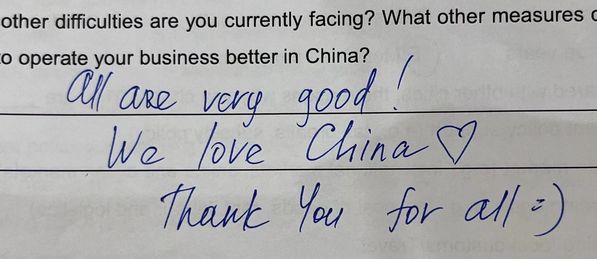 other difficulties are you currently facing? What other measures
to operate your business better in China?
All are very good!
We love China ♡
Thank You for all =)